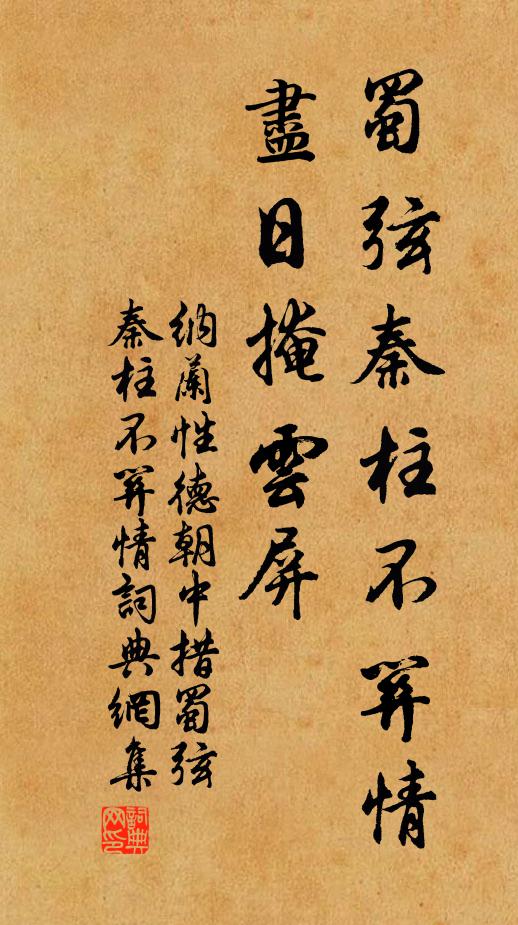 蜀弦秦柱不關情
盡日掩雲屏
納蘭性德朝中措蜀弦
秦柱不關情詞典網集
詞典
网印